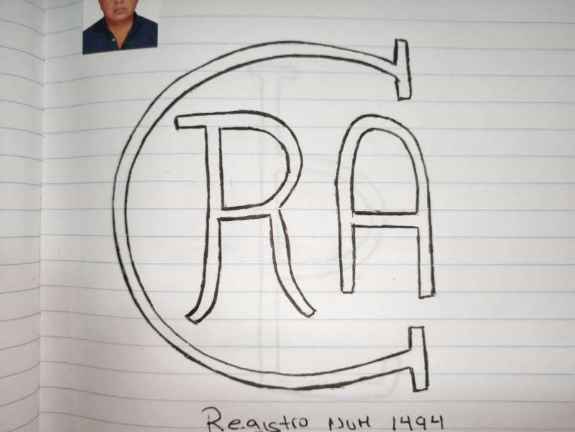 CRA
Registro NUM 1494